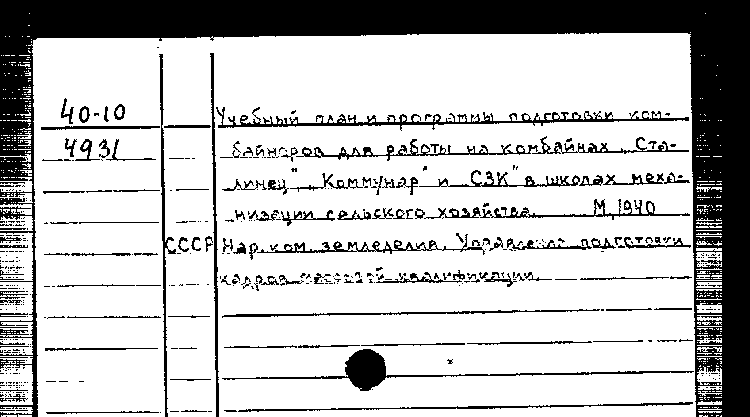 40-10 Учебный план и программы подготовки ком-
4931 байнеров для работы на комбайнах „Ста-
линец", „Коммунар" и СЗК" в школах меха-
низации сельского хозяйства. М, 1940
СССР Нар. ком. земледелия. Управление подготовки
кадров массовой квалификации.